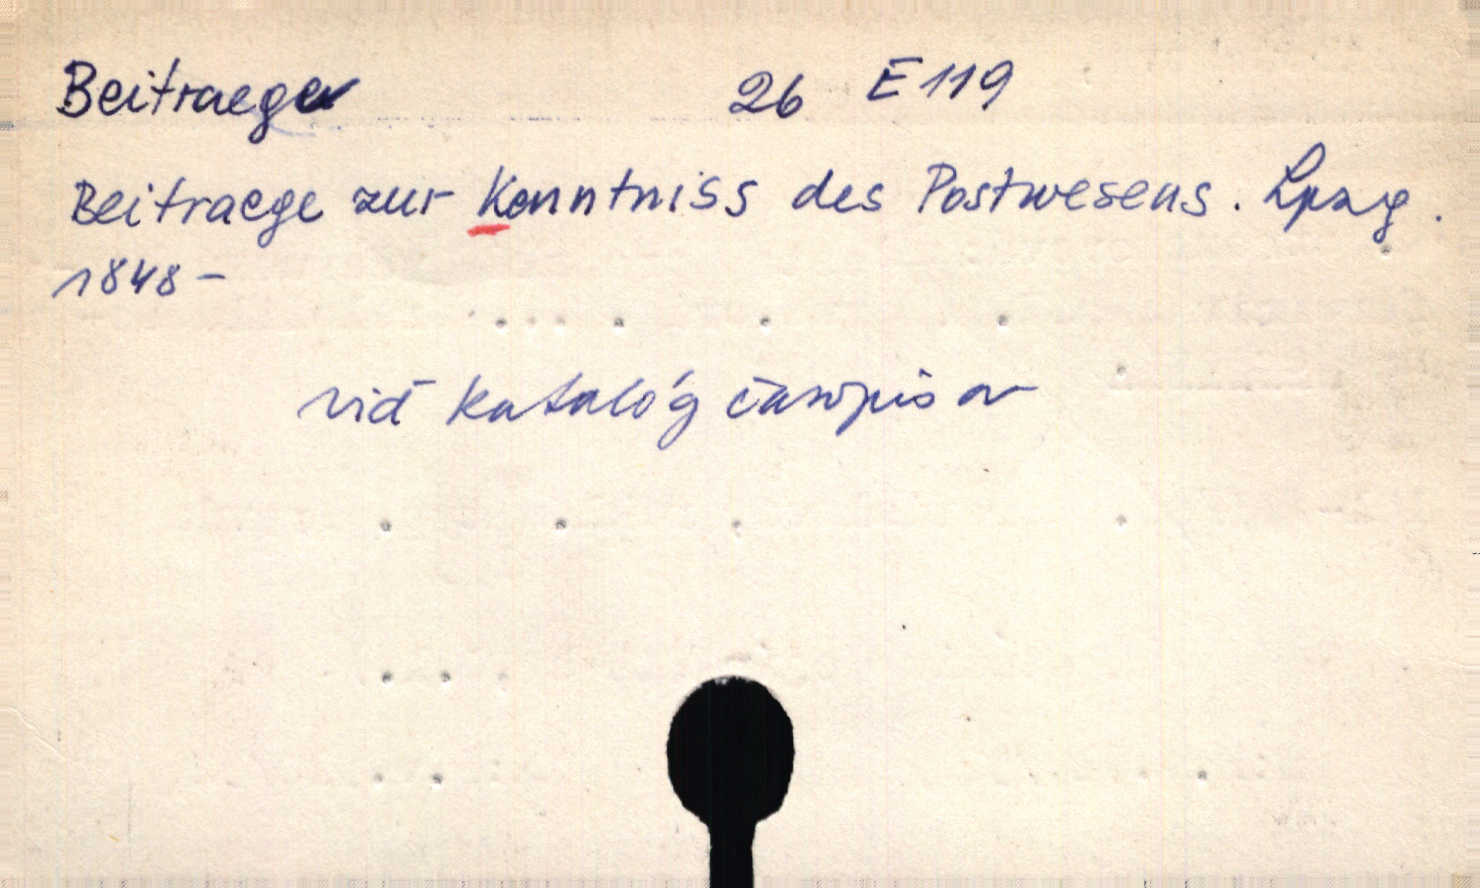 Beitraege 26 E 119
Beitraege zur Kenntniss des Postwesens. Lpzg.
1848 -
viď katalóg časopisov